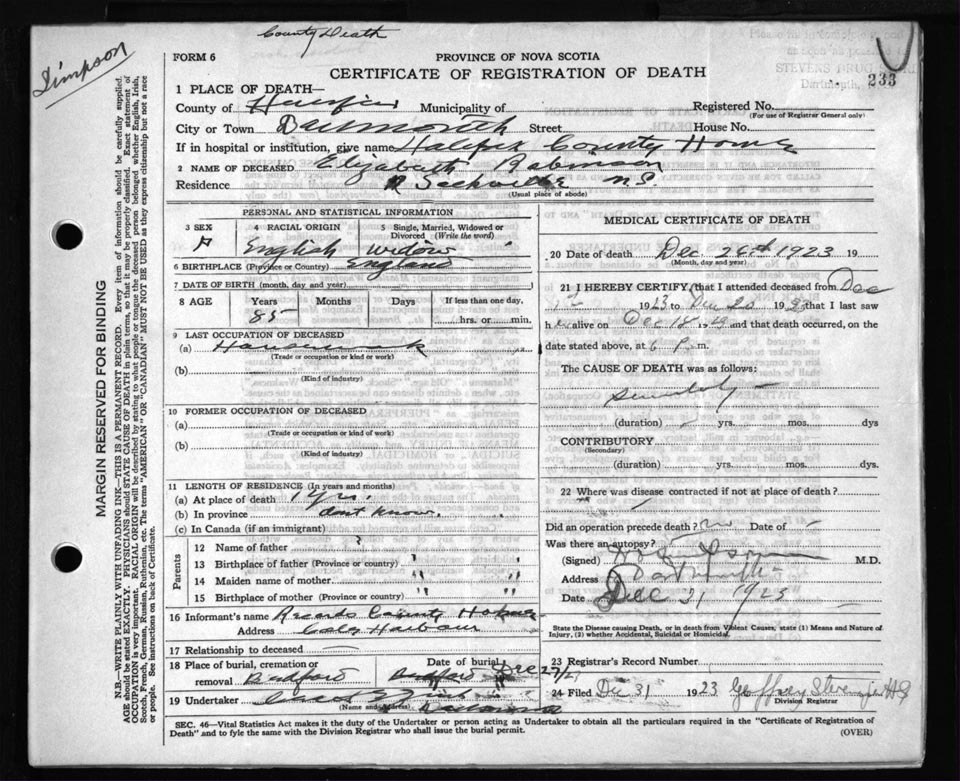 County Death
Simpson
FORM 6
PROVINCE OF NOVA SCOTIA
CERTIFICATE OF REGISTRATION OF DEATH
STEVENS DRUG STORE
Dartmouth, N.S.
233
1 PLACE OF DEATH—
County of Municipality of Registered No.
(For use of Registrar General only)
City or Town Dartmouth Street House No.
If in hospital or institution, give name Halifax County Home
2 NAME OF DECEASED Elizabeth Robinson
Residence Sackville N.S.
(Usual place of abode)
PERSONAL AND STATISTICAL INFORMATION
3 SEX 4 RACIAL ORIGIN 5 Single, Married, Widowed or Divorced (Write the word)
English widow
6 BIRTHPLACE (Province or Country) England
7 DATE OF BIRTH (month, day and year)
8 AGE Years Months Days If less than one day,
85 hrs. or min.
9 LAST OCCUPATION OF DECEASED
(a) Housework
(Trade or occupation or kind or work)
(b)
(Kind of industry)
10 FORMER OCCUPATION OF DECEASED
(a)
(Trade or occupation or kind of work)
(b)
(Kind of industry)
11 LENGTH OF RESIDENCE (In years and months)
(a) At place of death 1 yrs.
(b) In province don't know.
(c) In Canada (if an immigrant)
Parents
12 Name of father ?
13 Birthplace of father (Province or country) " "
14 Maiden name of mother " "
15 Birthplace of mother (Province or country) " "
16 Informant's name Records County Home
Address Cole Harbour
17 Relationship to deceased
18 Place of burial, cremation or removal Bedford Date of burial Dec 27/23
19 Undertaker
(Name and Address)
MEDICAL CERTIFICATE OF DEATH
20 Date of death Dec. 26th 1923 19
(Month, day and year)
21 I HEREBY CERTIFY, that I attended deceased from Dec
1st 1923 to 19 that I last saw
h er alive on Dec 18 19 and that death occurred, on the
date stated above, at 6 P. m.
The CAUSE OF DEATH was as follows:
(duration) yrs. mos. dys
CONTRIBUTORY
(Secondary)
(duration) yrs. mos. dys.
22 Where was disease contracted if not at place of death?
Did an operation precede death? no Date of
Was there an autopsy?
(Signed) M.D.
Address Dartmouth
Date Dec 31 1923
State the Disease causing Death, or in death from Violent Causes, state (1) Means and Nature of Injury, (2) whether Accidental, Suicidal or Homicidal.
23 Registrar's Record Number
24 Filed Dec 31 1923 Geoffrey Stevens
Division Registrar
SEC. 46—Vital Statistics Act makes it the duty of the Undertaker or person acting as Undertaker to obtain all the particulars required in the "Certificate of Registration of
Death" and to fyle the same with the Division Registrar who shall issue the burial permit.
(OVER)
MARGIN RESERVED FOR BINDING
N.B.—WRITE PLAINLY WITH UNFADING INK—THIS IS A PERMANENT RECORD. Every item of information should be carefully supplied.
AGE should be stated EXACTLY. PHYSICIANS should STATE CAUSE OF DEATH in plain terms, so that it may be properly classified. Exact statement of
OCCUPATION is very important. RACIAL ORIGIN will be described by stating to what people or tongue the deceased person belonged whether English, Irish,
Scotch, French, German, Russian, Ruthenian, etc. The terms "AMERICAN" OR "CANADIAN" MUST NOT BE USED as they express citizenship but not a race
or people. See instructions on back of Certificate.